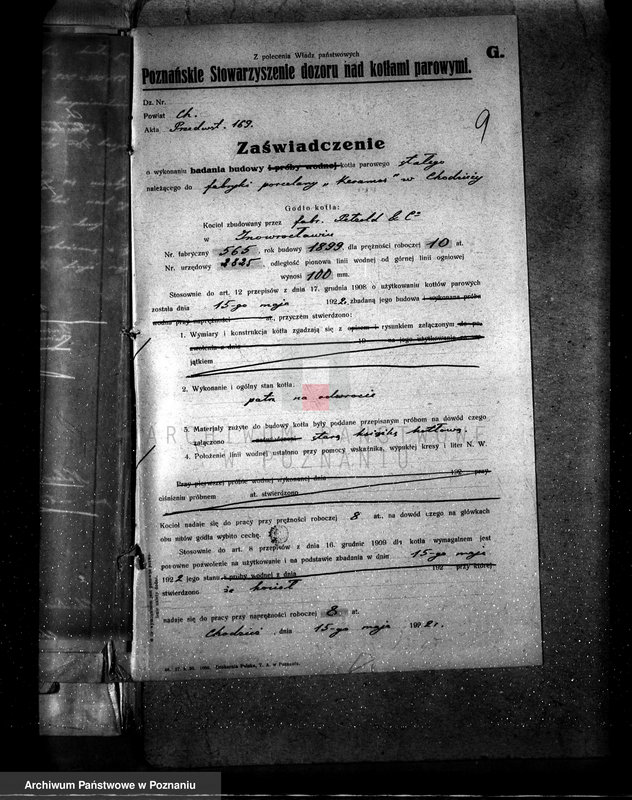 Z polecenia Władz państwowych
G.
Poznańskie Stowarzyszenie dozoru nad kotłami parowymi.
Dz. Nr.
Powiat Ch.
Akta Przedwst. 169.
9
Zaświadczenie
o wykonaniu badania budowy i próby wodnej kotła parowego stałego
należącego do fabryki porcelany „Keramos" w Chodzieży
Godło kotła:
Kocioł zbudowany przez fabr. Petzold & Co
w Inowrocławiu
Nr. fabryczny 565, rok budowy 1899 dla prężności roboczej 10 at.
Nr. urzędowy 2825, odległość pionowa linii wodnej od górnej linii ogniowej
wynosi 100 mm.
Stosownie do art. 12 przepisów z dnia 17. grudnia 1908 o użytkowaniu kotłów parowych
została dnia 15-go maja 1922, zbadaną jego budowa i wykonana próba
wodna przy naprężności at., przyczem stwierdzono:
1. Wymiary i konstrukcja kotła zgadzają się z opisem i rysunkiem załączonym do po-
zwolenia z dnia 19 na jego użytkowanie za wy-
jątkiem
2. Wykonanie i ogólny stan kotła:
patrz na odwrocie
3. Materjały zużyte do budowy kotła były poddane przepisanym próbom na dowód czego
załączono starą książkę kotłową
4. Położenie linii wodnej ustalono przy pomocy wskaźnika, wypukłej kresy i liter N. W.
Przy pierwszej próbie wodnej wykonanej dnia 192 przy
ciśnieniu próbnem at. stwierdzono
Kocioł nadaje się do pracy przy prężności roboczej 8 at., na dowód czego na główkach
obu nitów godła wybito cechę.
Stosownie do art. 8 przepisów z dnia 16. grudnia 1909 dla kotła wymaganem jest
ponowne pozwolenie na użytkowanie i na podstawie zbadania w dniu 15-go maja
1922 jego stanu i próby wodnej z dnia 192 przy której
stwierdzono że kocioł
nadaje się do pracy przy naprężności roboczej 8 at.
Chodzież, dnia 15-go maja 1922 r.
Drukarnia Polska, T. A. w Poznaniu.
ARCHIWUM PAŃSTWOWE
W POZNANIU
Archiwum Państwowe w Poznaniu